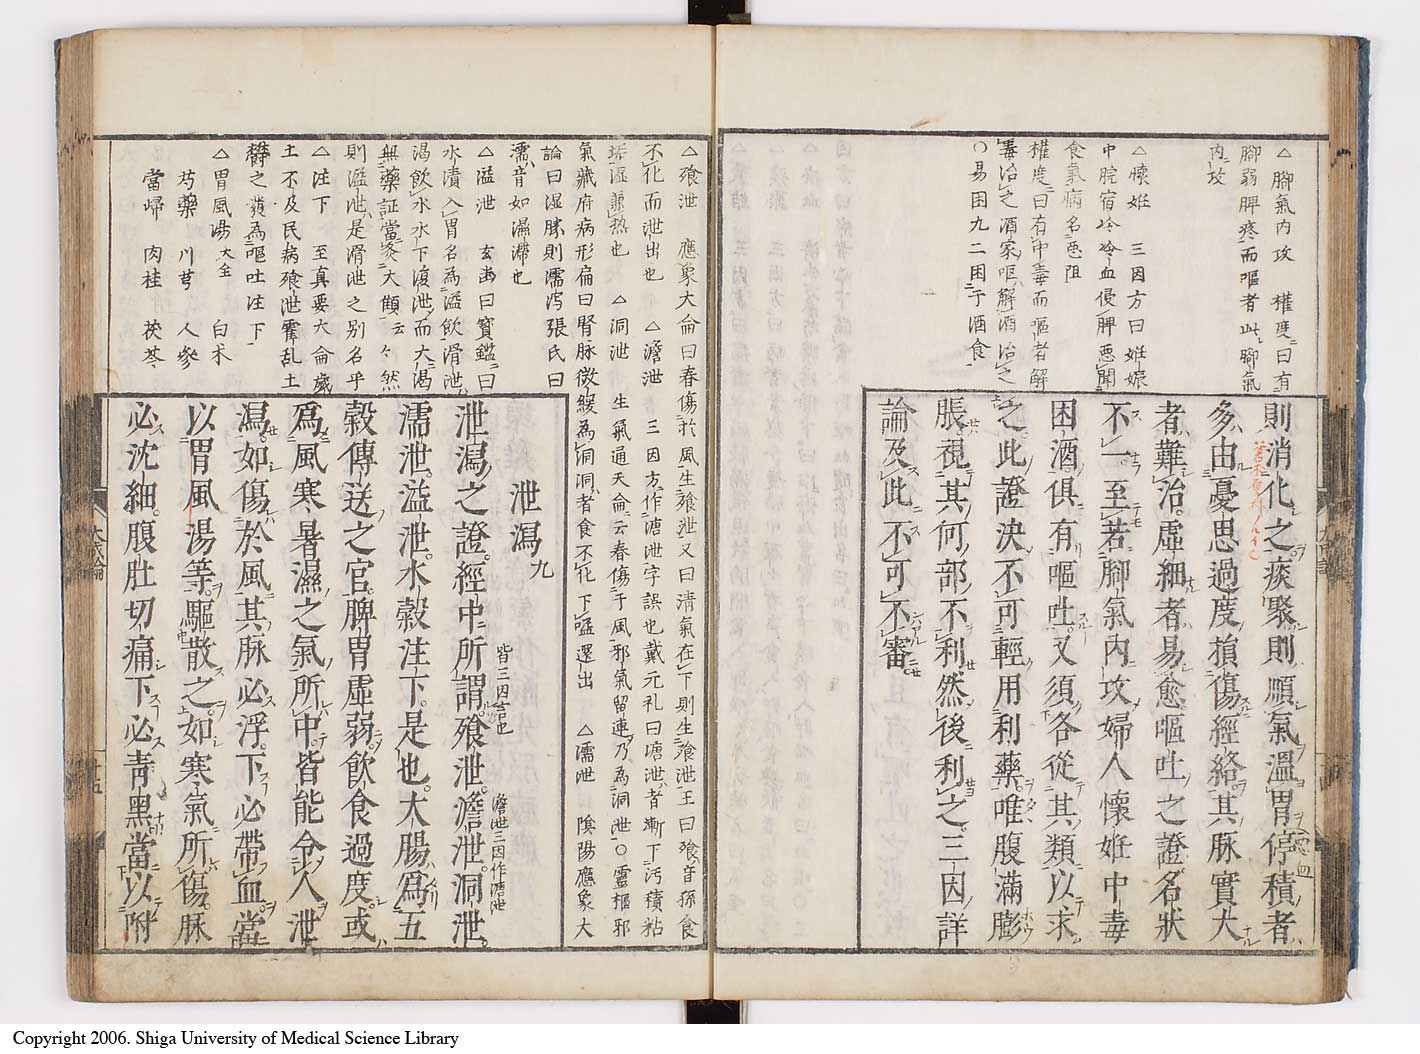 △腳氣内攻 權度ニ曰有
腳弱脾疼而嘔者此腳氣
内攻
△懐妊 三因方曰妊娠
中脘宿冷冷血侵脾悪聞
食氣病名悪阻
權度曰有中毒而嘔者解
毒治之酒家嘔解酒治之
○易困九二困于酒食
則消化之痰聚則順氣溫胃停積者
多由憂思過度損傷經絡其脉實大
者難治虛細者易愈嘔吐之證名狀
不一至若腳氣内攻婦人懷妊中毒
困酒俱有嘔吐又須各從其類以求
之此證決不可輕用利藥唯腹滿膨
脹視其何部不利然後利之三因詳
論及此不可不審
△飱泄 應象大侖曰春傷於風生飱泄又曰清氣在下則生飱泄王曰飱音孫食
不化而泄出也 △澹泄 三因方作溏泄字誤也戴元礼曰溏泄者漸下汚積粘
垢湿兼熱也 △洞泄 生氣通天侖云春傷于風邪氣留連乃為洞泄○靈樞邪
氣藏府病形扁曰腎脉微緩為洞洞者食不化下嗌還出 △濡泄 陰陽應象大
論曰湿勝則濡泻張氏曰
濡音如濕滞也
△溢泄 玄啚曰寳鑑曰
水漬入胃名為溢飲滑泄
渴飲水水下復泄而大渴
無藥証當灸大顀云々然
則溢泄是滑泄之别名乎
△注下 至真要大侖歲
土不及民病飱泄霍乱土
欝之發為嘔吐注下
△胃風湯大全 白朮
芍藥 川芎 人參
當歸 肉桂 茯苓
泄瀉九
泄瀉之證經中所謂飱泄澹泄洞泄
皆三因言也
澹泄三因作溏泄
濡泄溢泄水穀注下是也大腸為五
穀傳送之官脾胃虛弱飲食過度或
爲風寒暑濕之氣所中皆能令人泄
瀉如傷於風其脉必浮下必帶血當
以胃風湯等驅散之如寒氣所傷脉
必沈細腹肚切痛下必青黑當以附
大成論
Copyright 2006. Shiga University of Medical Science Library